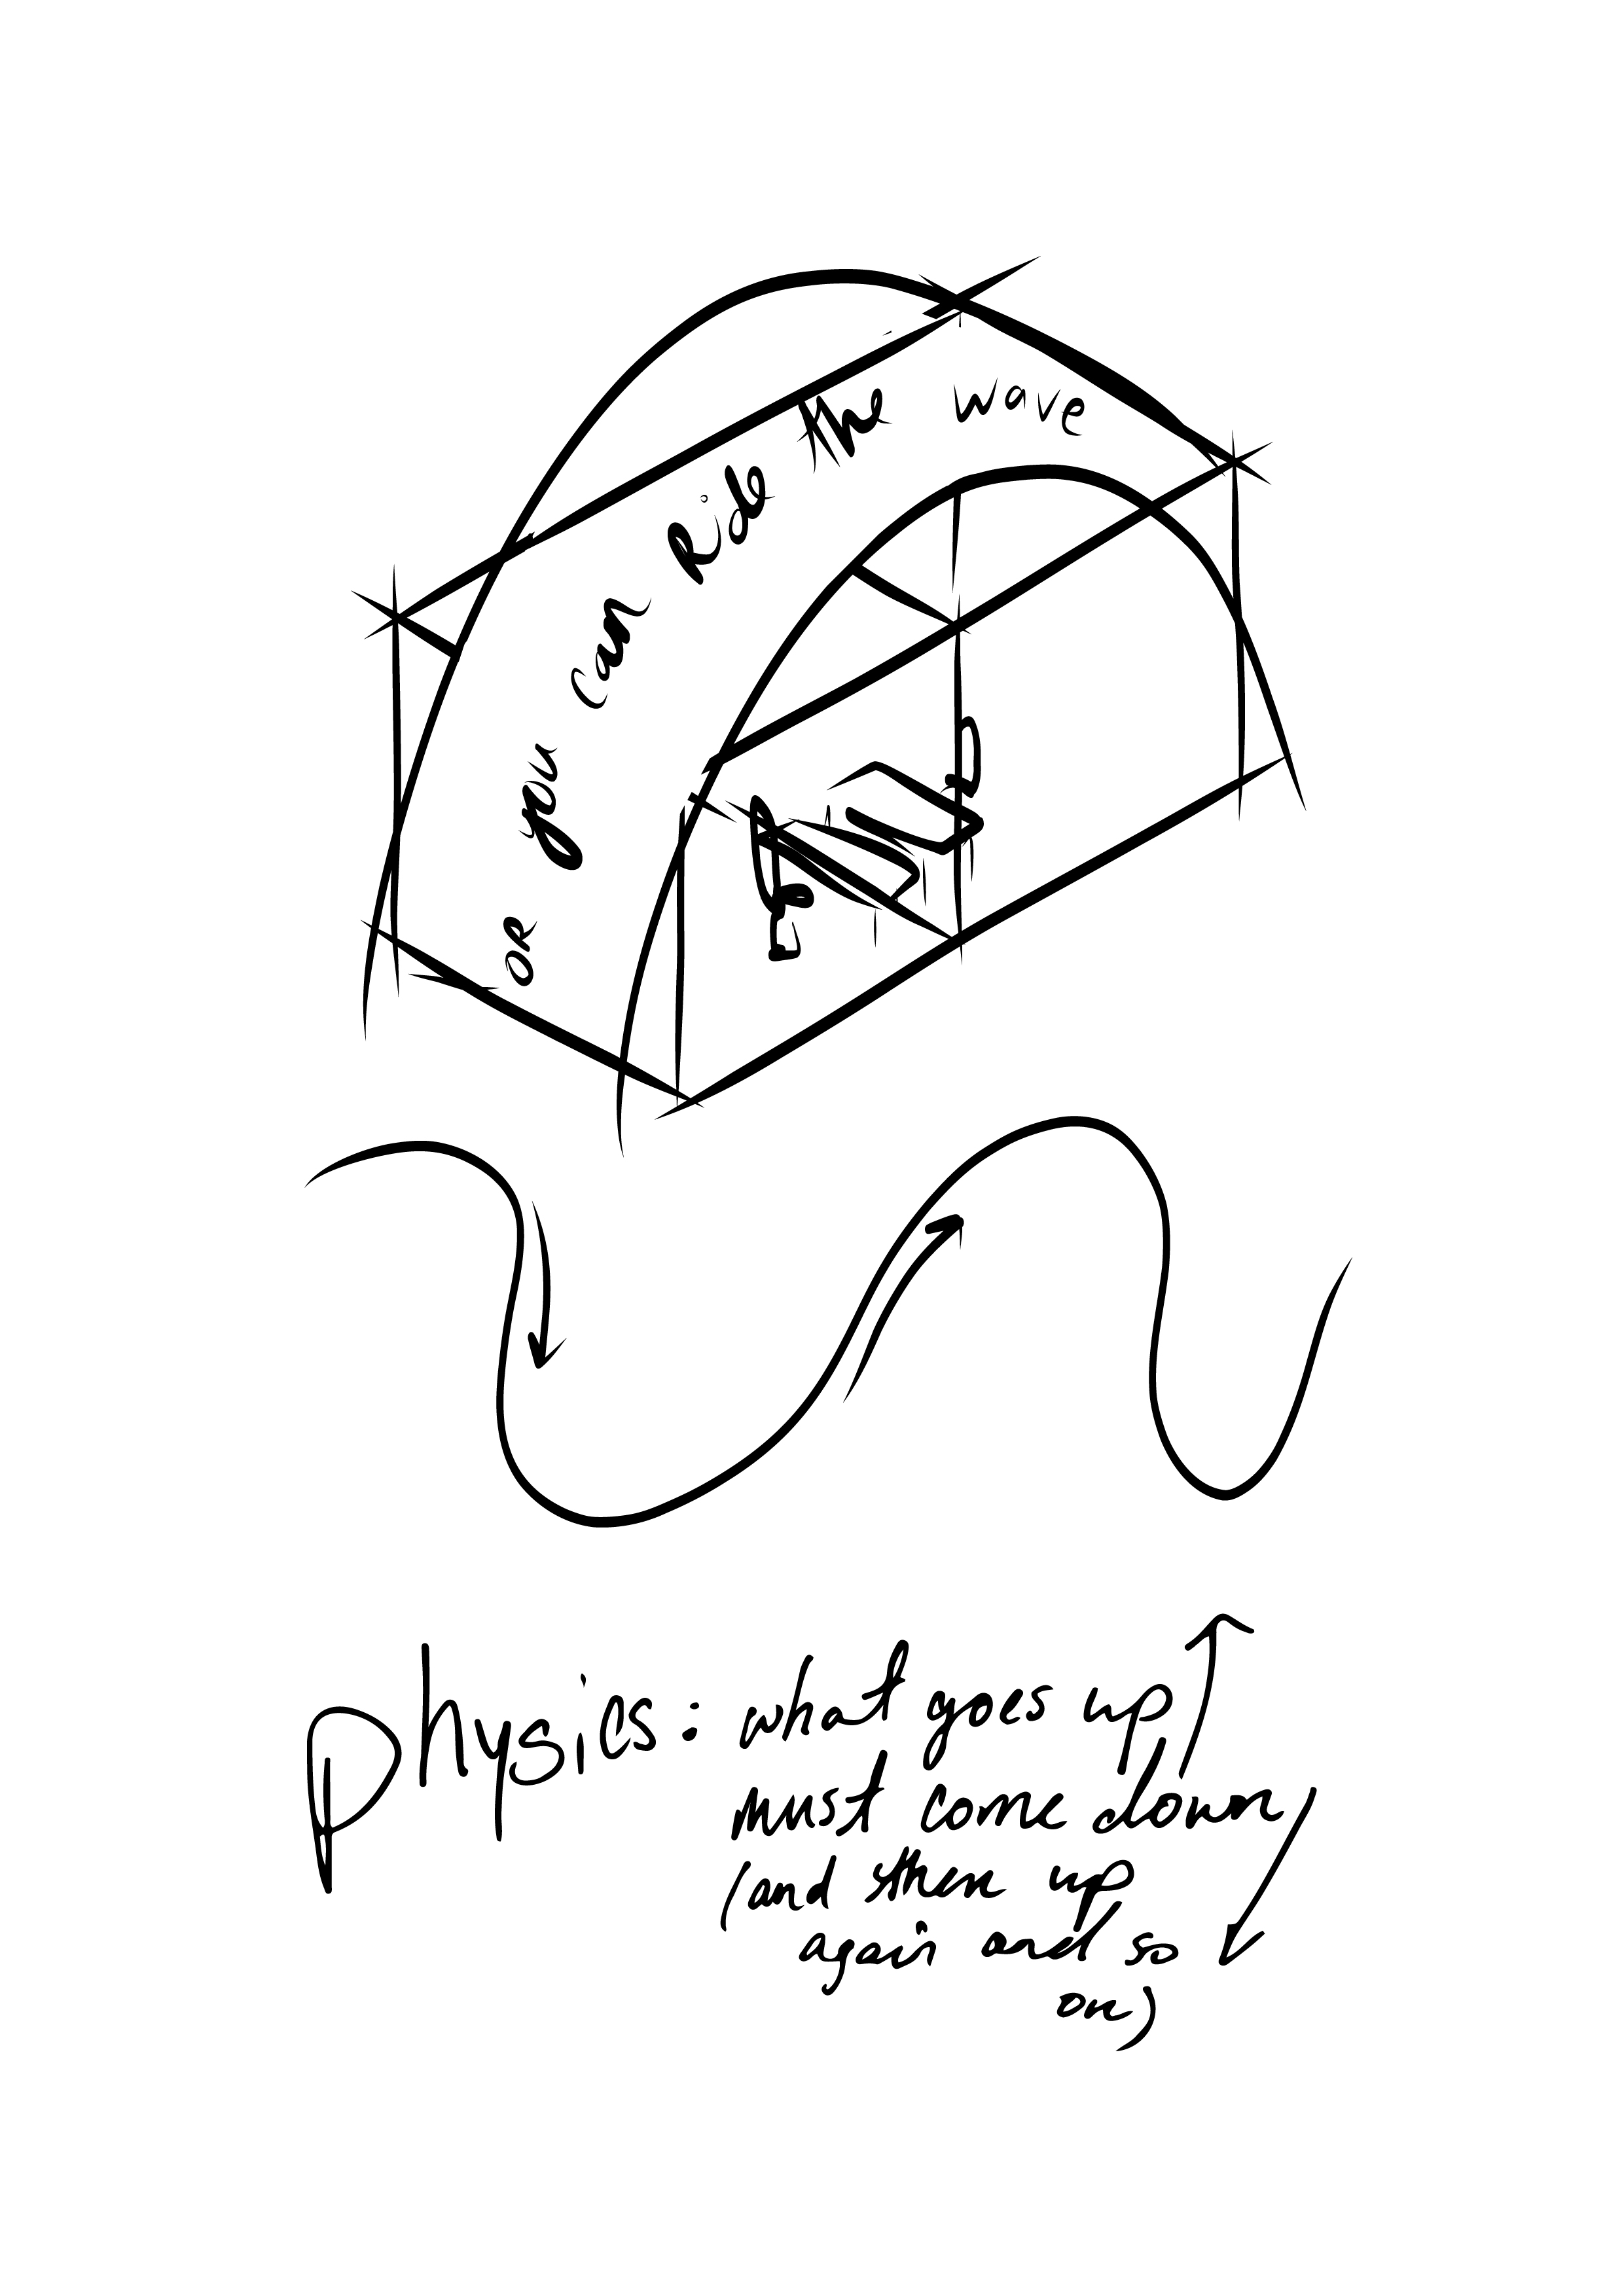 so you can Ride the wave
Physics: what goes up
must come down
(and then up
again and so
on)